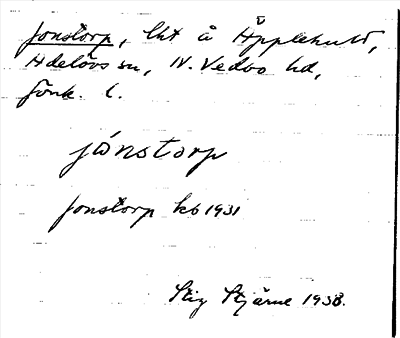 Jonstorp, lht å Äpplehult,
Adelövs sn, N. Vedbo hd,
Jönk. l.
jånstorp
Jonstorp kb 1931
Stig Stjärne 1938.